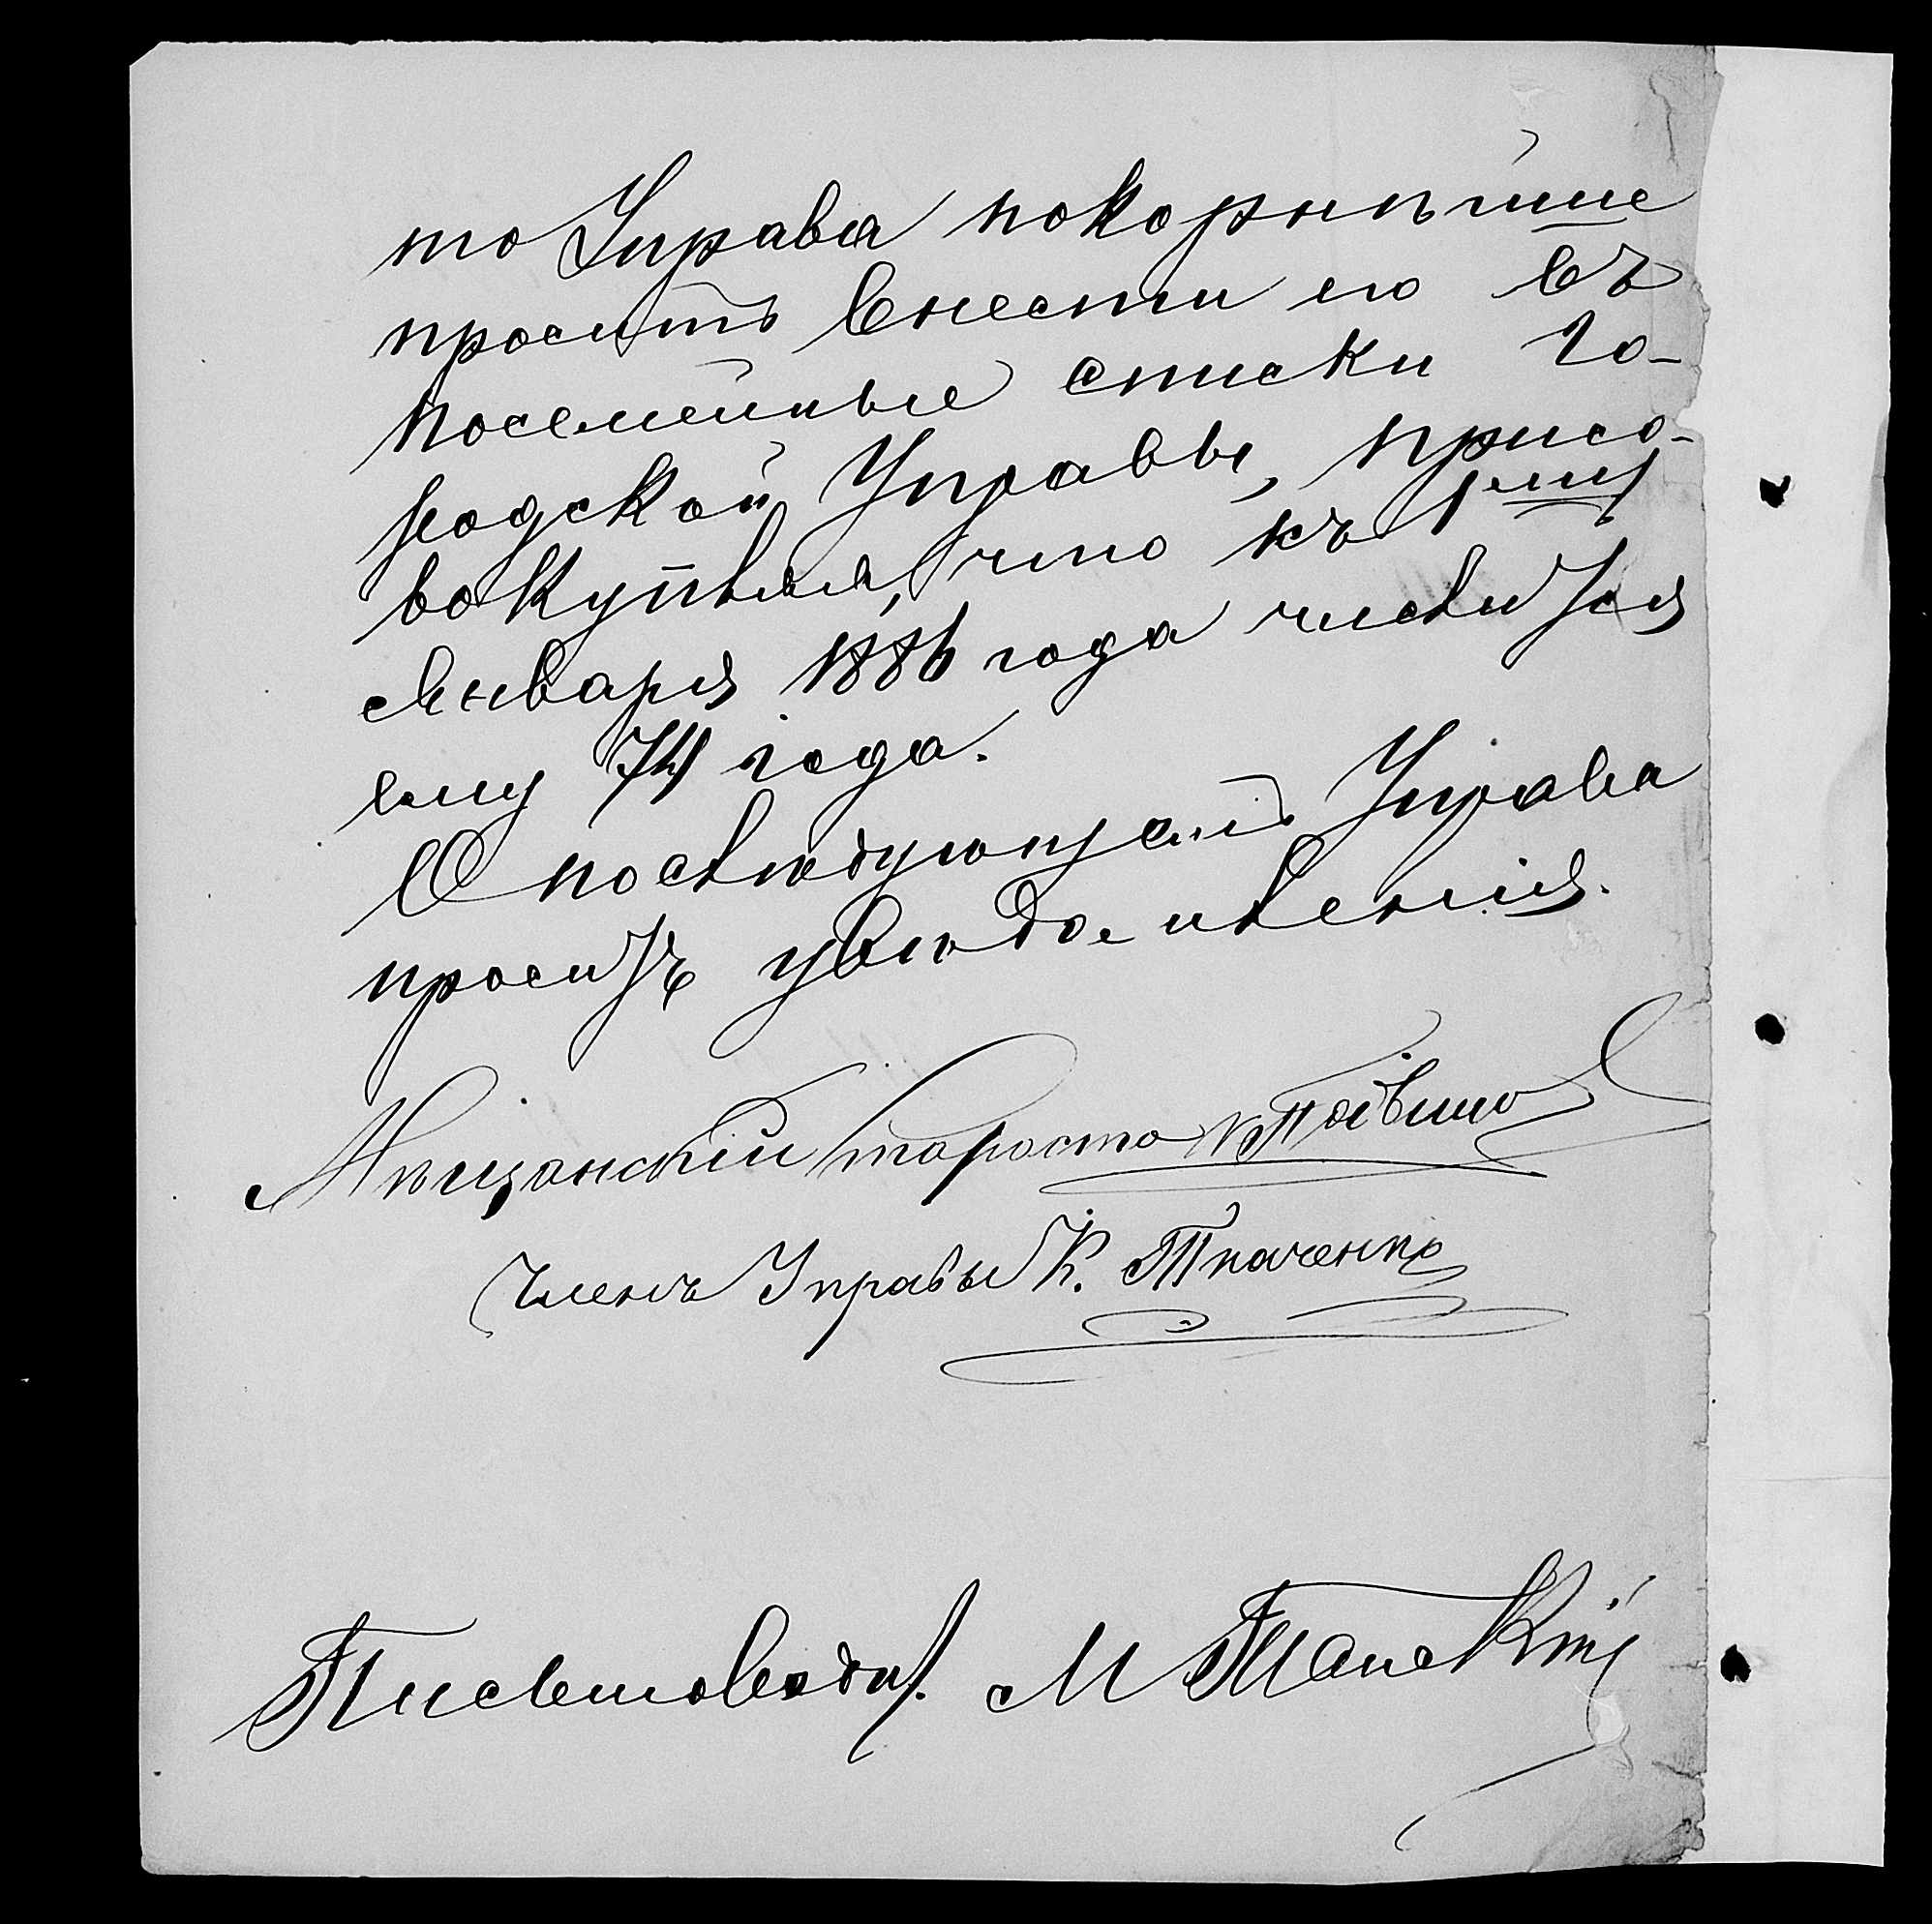 то Управа покорнѣйше
проситъ внести его въ
посемейные списки Го-
родской Управы, присо-
вокупляя, что къ 1му
Января 1886 года числится
ему 74 года.
О послѣдующемъ Управа
проситъ увѣдомленія.
Мѣщанскій староста
Членъ Управы К. Ткаченко
Письмоводит. М